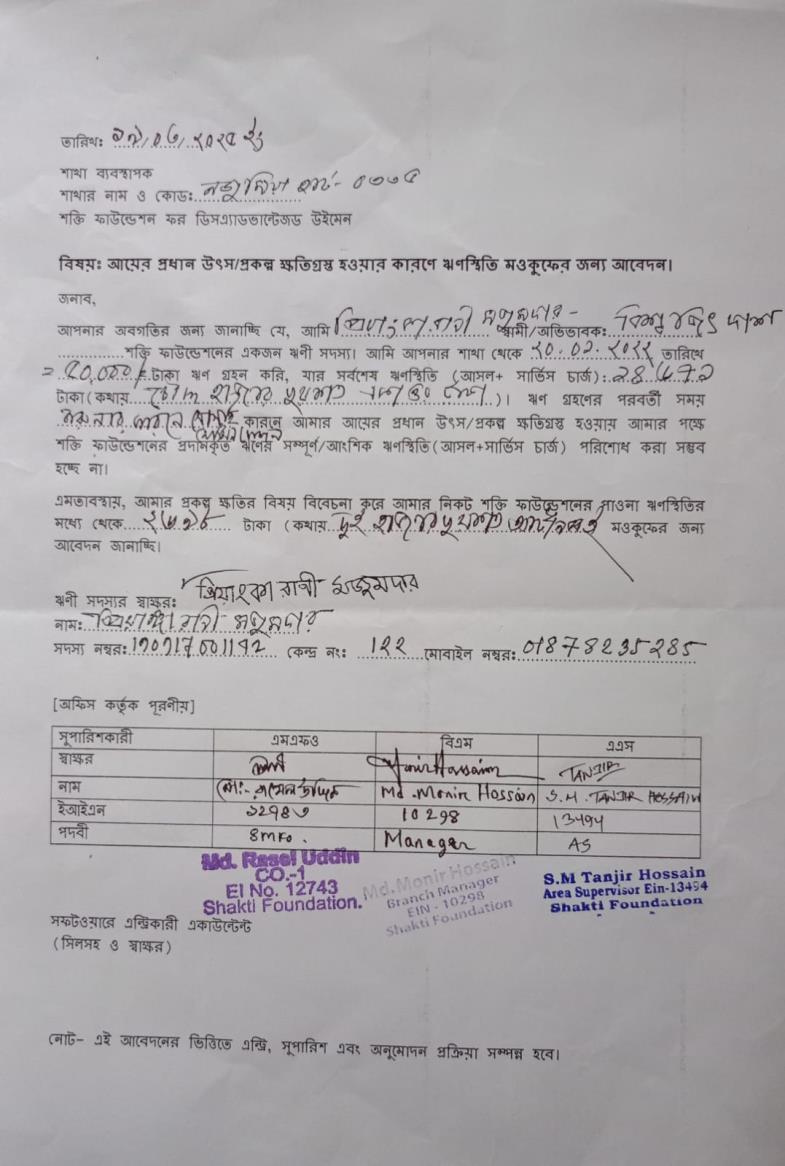 তারিখঃ
শাখা ব্যবস্থাপক
শাখার নাম ও কোডঃ হাট- ০৩৩৫
শক্তি ফাউন্ডেশন ফর ডিসএ্যাডভান্টেজড উইমেন
বিষয়ঃ আয়ের প্রধান উৎস/প্রকল্প ক্ষতিগ্রস্থ হওয়ার কারণে ঋণস্থিতি মওকুফের জন্য আবেদন।
জনাব,
আপনার অবগতির জন্য জানাচ্ছি যে, আমি রানী মজুমদার- স্বামী/অভিভাবক: দাশ
শক্তি ফাউন্ডেশনের একজন ঋনী সদস্য। আমি আপনার শাখা থেকে ২০.০২.২০২২ তারিখে
টাকা ঋণ গ্রহন করি, যার সর্বশেষ ঋণস্থিতি (আসল+ সার্ভিস চার্জ):
টাকা(কথায় )। ঋণ গ্রহনের পরবর্তী সময়
কারনে আমার আয়ের প্রধান উৎস/প্রকল্প ক্ষতিগ্রস্থ হওয়ায় আমার পক্ষে
শক্তি ফাউন্ডেশনের প্রদানকৃত ঋনের সম্পূর্ণ/আংশিক ঋণস্থিতি(আসল+সার্ভিস চার্জ) পরিশোধ করা সম্ভব
হচ্ছে না।
এমতাবস্থায়, আমার প্রকল্প ক্ষতির বিষয় বিবেচনা করে আমার নিকট শক্তি ফাউন্ডেশনের পাওনা ঋণস্থিতির
মধ্যে থেকে টাকা (কথায় দুই হাজার মওকুফের জন্য
আবেদন জানাচ্ছি।
ঋনী সদস্যর স্বাক্ষরঃ প্রিয়াংকা রানী মজুমদার
নামঃ রানী মজুমদার
সদস্য নম্বরঃ কেন্দ্র নংঃ ১২২ মোবাইল নম্বরঃ 01878235285
[অফিস কর্তৃক পূরনীয়]
সুপারিশকারী এমএফও বিএম এএস
স্বাক্ষর Monir Hossain TANJIR
নাম Md. Monir Hossain S.M. TANJIR HOSSAIN
ইআইএন ১২৭৪৩ 10298 13494
পদবী SMFO. Manager AS
Md. Rasel Uddin
CO.-1
EI No. 12743
Shakti Foundation.
Md. Monir Hossain
Branch Manager
EIN - 10298
Shakti Foundation
S.M Tanjir Hossain
Area Supervisor Ein-13494
Shakti Foundation
সফটওয়ারে এন্ট্রিকারী একাউন্টেন্ট
(সিলসহ ও স্বাক্ষর)
নোট- এই আবেদনের ভিত্তিতে এন্ট্রি, সুপারিশ এবং অনুমোদন প্রক্রিয়া সম্পন্ন হবে।